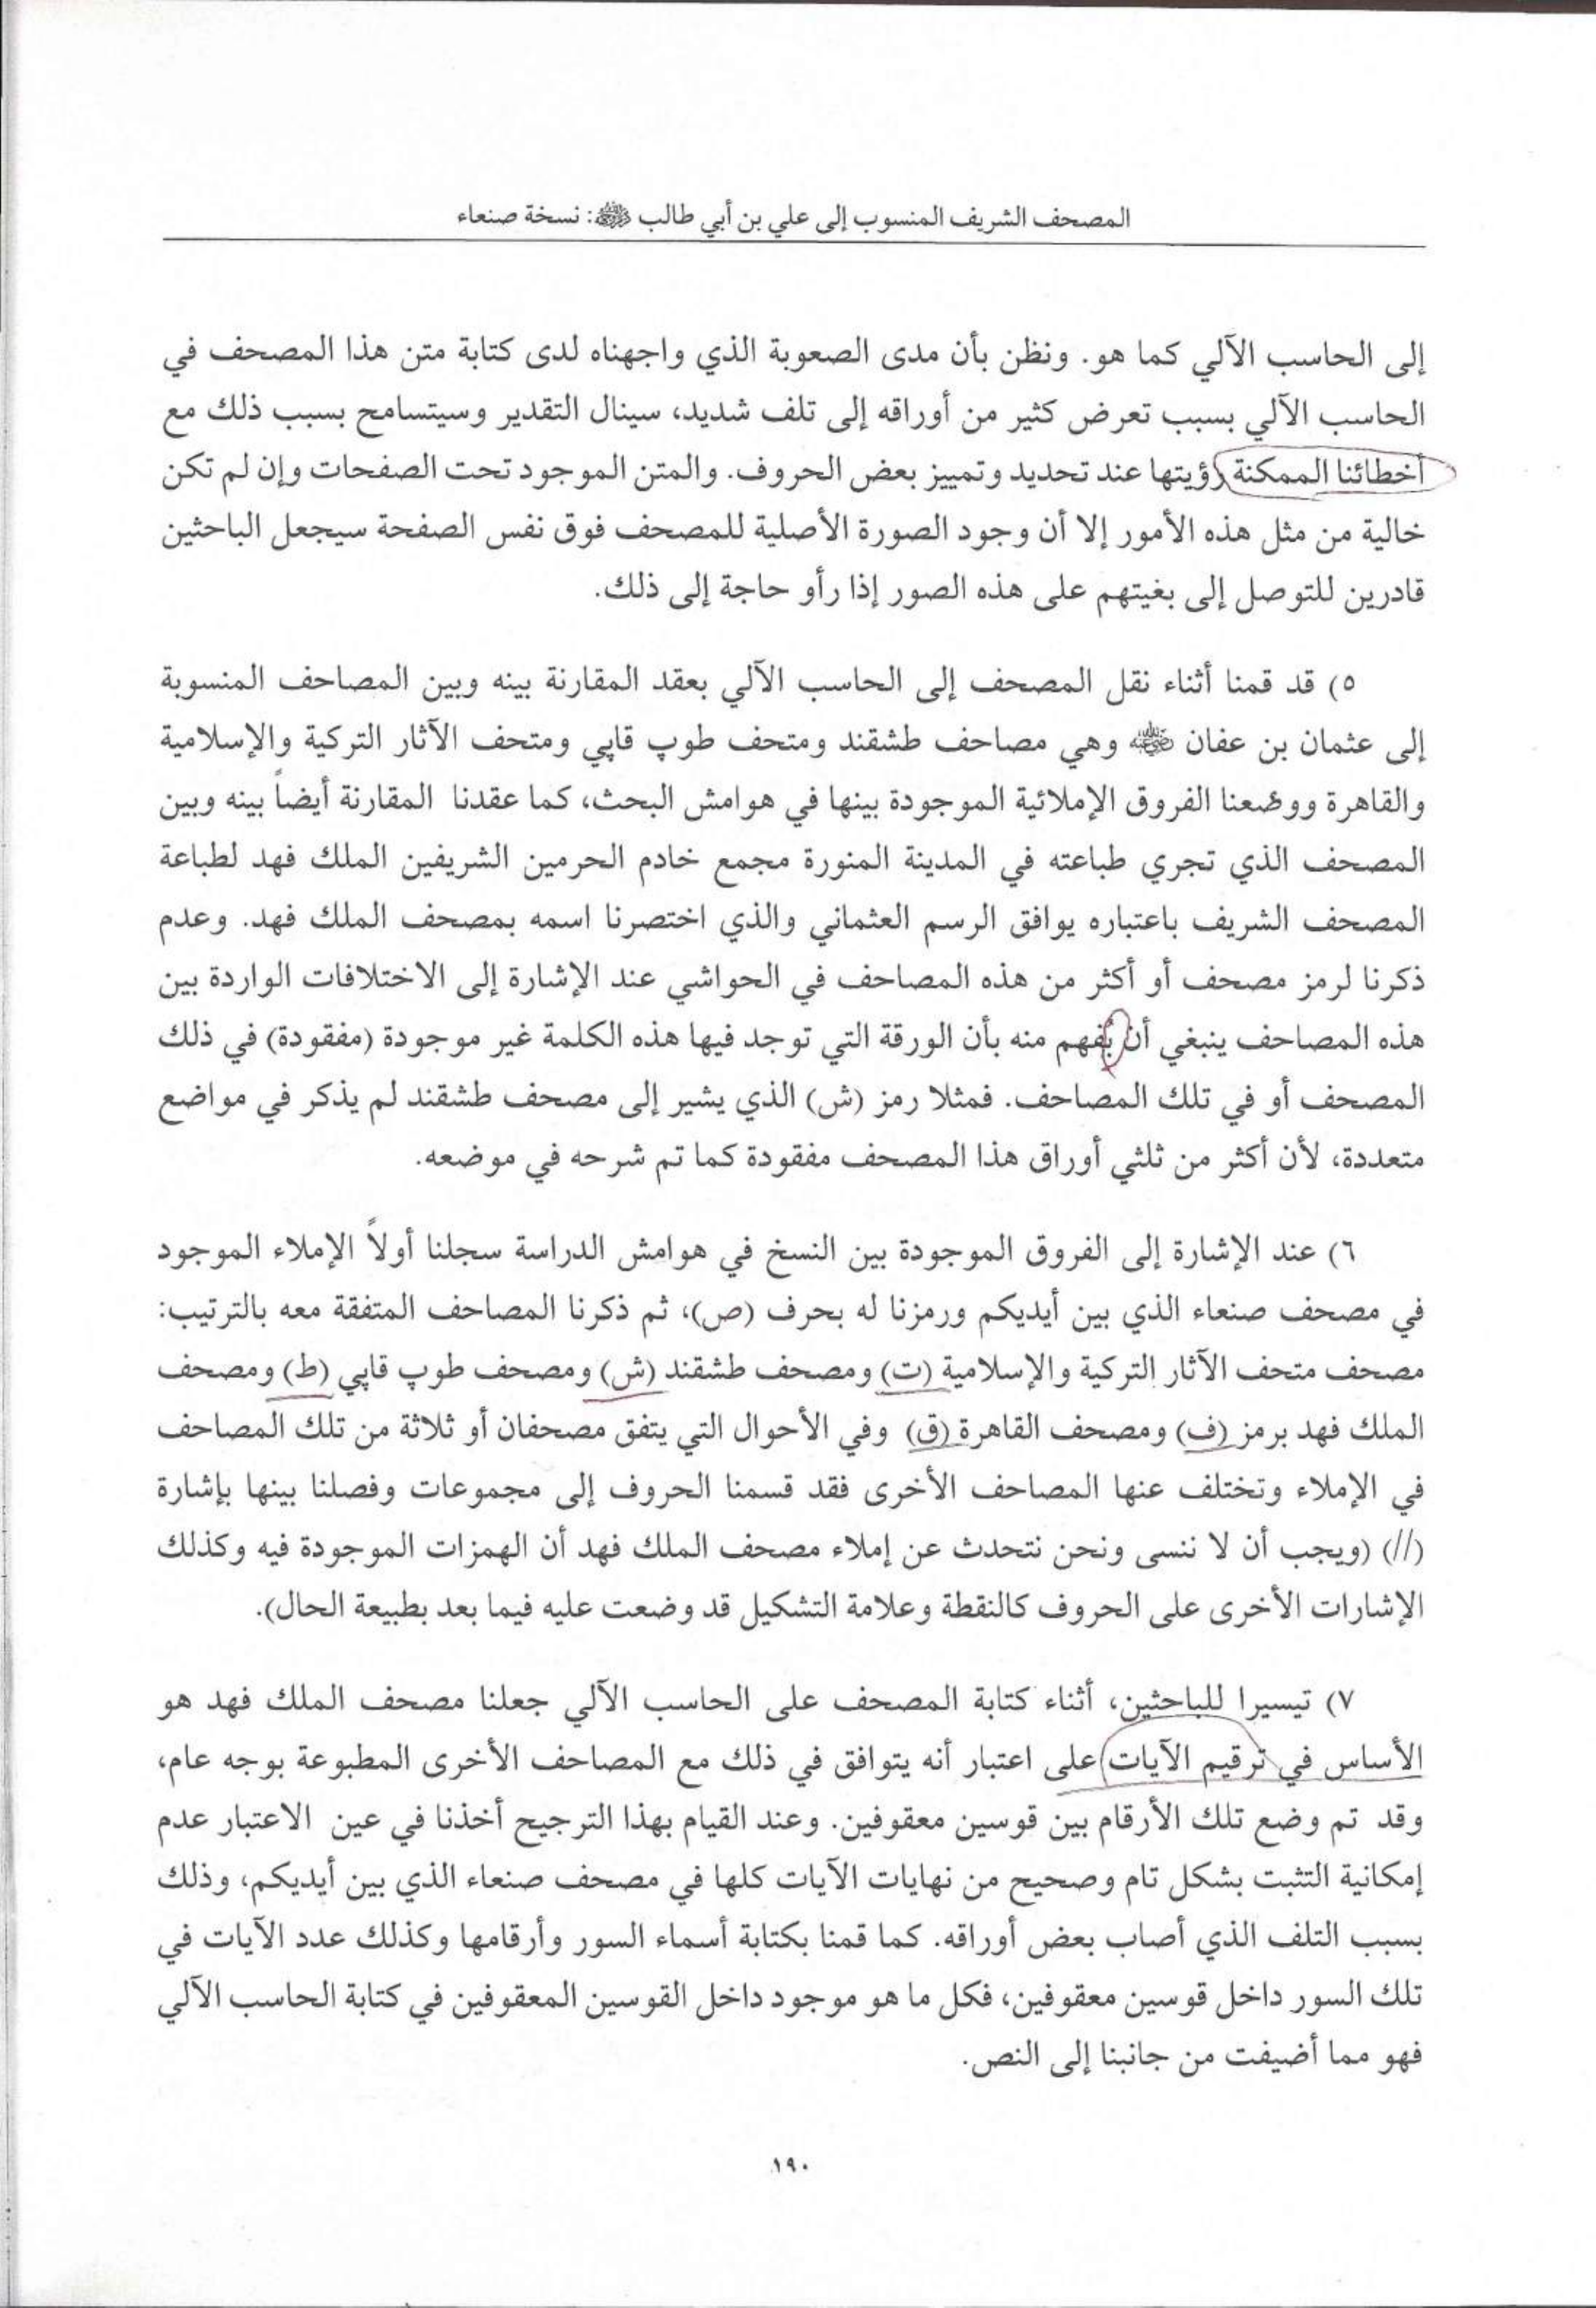 المصحف الشريف المنسوب إلى علي بن أبي طالب ﷺ: نسخة صنعاء
إلى الحاسب الآلي كما هو. ونظن بأن مدى الصعوبة الذي واجهناه لدى كتابة متن هذا المصحف في
الحاسب الآلي بسبب تعرض كثير من أوراقه إلى تلف شديد، سينال التقدير وسيتسامح بسبب ذلك مع
أخطائنا الممكنة رؤيتها عند تحديد وتمييز بعض الحروف. والمتن الموجود تحت الصفحات وإن لم تكن
خالية من مثل هذه الأمور إلا أن وجود الصورة الأصلية للمصحف فوق نفس الصفحة سيجعل الباحثين
قادرين للتوصل إلى بغيتهم على هذه الصور إذا رأو حاجة إلى ذلك.
٥) قد قمنا أثناء نقل المصحف إلى الحاسب الآلي بعقد المقارنة بينه وبين المصاحف المنسوبة
إلى عثمان بن عفان رضي الله عنه وهي مصاحف طشقند ومتحف طوپ قاپي ومتحف الآثار التركية والإسلامية
والقاهرة ووضعنا الفروق الإملائية الموجودة بينها في هوامش البحث، كما عقدنا المقارنة أيضاً بينه وبين
المصحف الذي تجري طباعته في المدينة المنورة مجمع خادم الحرمين الشريفين الملك فهد لطباعة
المصحف الشريف باعتباره يوافق الرسم العثماني والذي اختصرنا اسمه بمصحف الملك فهد. وعدم
ذكرنا لرمز مصحف أو أكثر من هذه المصاحف في الحواشي عند الإشارة إلى الاختلافات الواردة بين
هذه المصاحف ينبغي أن يفهم منه بأن الورقة التي توجد فيها هذه الكلمة غير موجودة (مفقودة) في ذلك
المصحف أو في تلك المصاحف. فمثلا رمز (ش) الذي يشير إلى مصحف طشقند لم يذكر في مواضع
متعددة، لأن أكثر من ثلثي أوراق هذا المصحف مفقودة كما تم شرحه في موضعه.
٦) عند الإشارة إلى الفروق الموجودة بين النسخ في هوامش الدراسة سجلنا أولاً الإملاء الموجود
في مصحف صنعاء الذي بين أيديكم ورمزنا له بحرف (ص)، ثم ذكرنا المصاحف المتفقة معه بالترتيب:
مصحف متحف الآثار التركية والإسلامية (ت) ومصحف طشقند (ش) ومصحف طوپ قاپي (ط) ومصحف
الملك فهد برمز (ف) ومصحف القاهرة (ق) وفي الأحوال التي يتفق مصحفان أو ثلاثة من تلك المصاحف
في الإملاء وتختلف عنها المصاحف الأخرى فقد قسمنا الحروف إلى مجموعات وفصلنا بينها بإشارة
(//) (ويجب أن لا ننسى ونحن نتحدث عن إملاء مصحف الملك فهد أن الهمزات الموجودة فيه وكذلك
الإشارات الأخرى على الحروف كالنقطة وعلامة التشكيل قد وضعت عليه فيما بعد بطبيعة الحال).
٧) تيسيرا للباحثين، أثناء كتابة المصحف على الحاسب الآلي جعلنا مصحف الملك فهد هو
الأساس في ترقيم الآيات على اعتبار أنه يتوافق في ذلك مع المصاحف الأخرى المطبوعة بوجه عام،
وقد تم وضع تلك الأرقام بين قوسين معقوفين. وعند القيام بهذا الترجيح أخذنا في عين الاعتبار عدم
إمكانية التثبت بشكل تام وصحيح من نهايات الآيات كلها في مصحف صنعاء الذي بين أيديكم، وذلك
بسبب التلف الذي أصاب بعض أوراقه. كما قمنا بكتابة أسماء السور وأرقامها وكذلك عدد الآيات في
تلك السور داخل قوسين معقوفين، فكل ما هو موجود داخل القوسين المعقوفين في كتابة الحاسب الآلي
فهو مما أضيفت من جانبنا إلى النص.
١٩٠